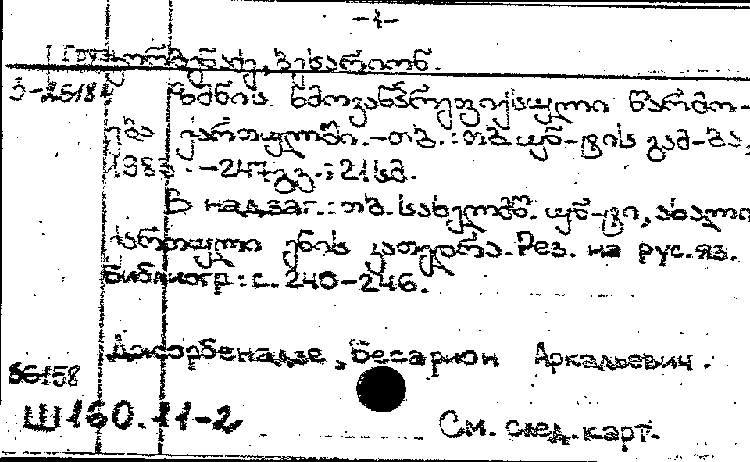 -1-
ჯორბენაძე, ბესარიონ.
ზმნის ხმოვანპრეფიქსული წარმო-
ება ქართულში.-თბ.:თბ.უნ-ტის გამ-ბა,
1983.-247გვ.;21სმ.
В надзаг.:თბ.სახელმწ.უნ-ტი,ახალი
ქართული ენის კათედრა.Рез. на рус.яз.
Библиогр:с.240-246.
Джорбенадзе, Бесарион Аркадьевич.
86158
Ш160.11-2
См. след.карт.